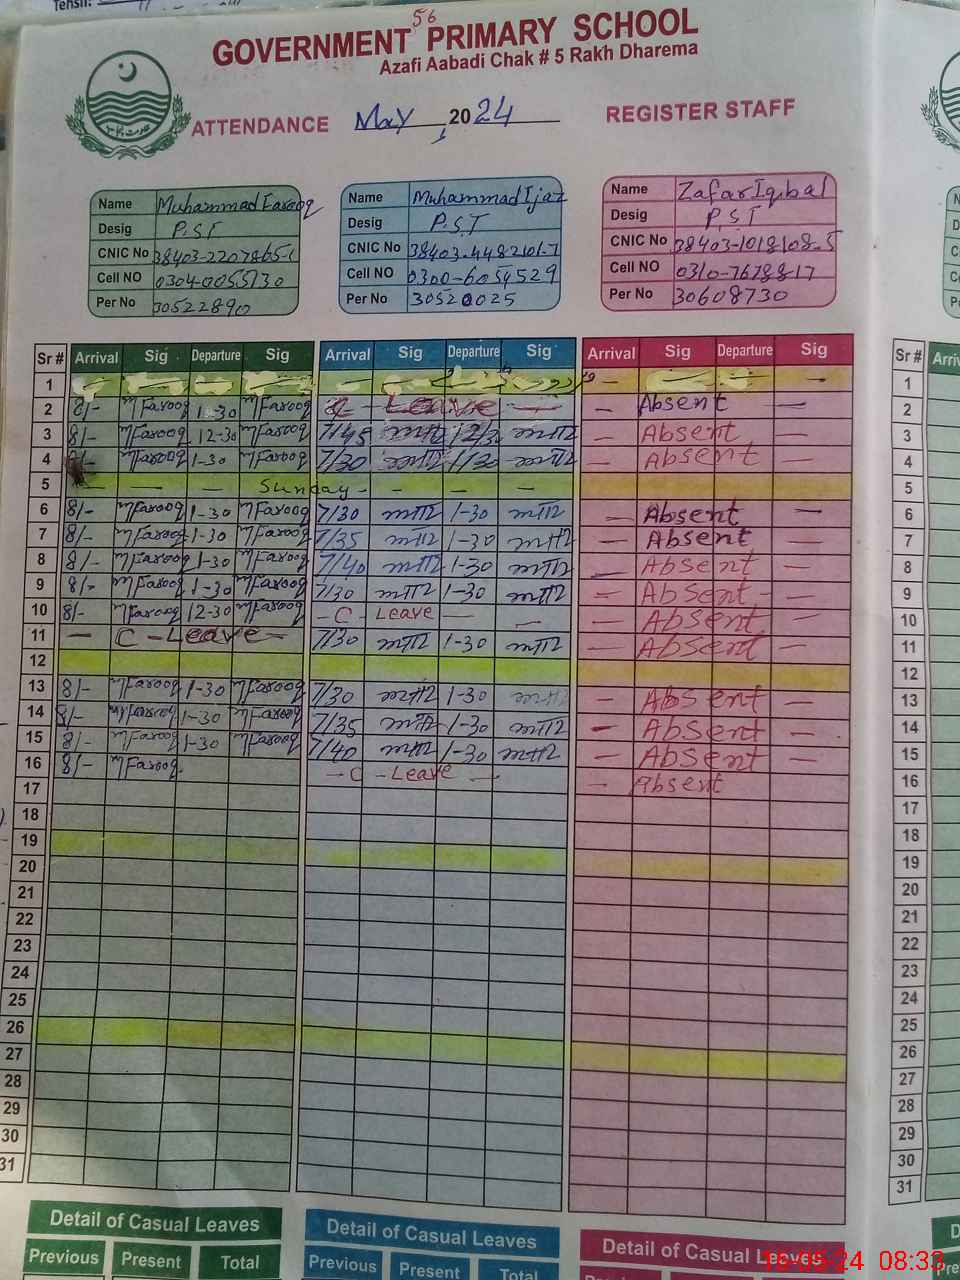 Tehsil:
56
GOVERNMENT PRIMARY SCHOOL
Azafi Aabadi Chak # 5 Rakh Dharema
ATTENDANCE May 2024 REGISTER STAFF
Name Muhammad Farooq
Desig P.S.T
CNIC No 38403-2207865-1
Cell NO 0304-0055130
Per No 30522890
Name Muhammad Ijaz
Desig P.S.T
CNIC No 38403-4482101-7
Cell NO 0300-6054529
Per No 30520025
Name Zafar Iqbal
Desig P.S.T
CNIC No 38403-1018108-5
Cell NO 0310-7678817
Per No 30608730
Sr # Arrival Sig Departure Sig Arrival Sig Departure Sig Arrival Sig Departure Sig Sr #
1 1
2 8/- MFarooq 1-30 MFarooq C - Leave — — Absent — 2
3 8/- MFarooq 12-30 MFarooq 7/45 12/30 — Absent — 3
4 8/- MFarooq 1-30 MFarooq 7/30 1/30 — Absent — 4
5 — — — Sunday - - — — 5
6 8/- MFarooq 1-30 MFarooq 7/30 1-30 — Absent — 6
7 8/- MFarooq 1-30 MFarooq 7/35 1-30 — Absent — 7
8 8/- MFarooq 1-30 MFarooq 7/40 1-30 — Absent — 8
9 8/- MFarooq 1-30 MFarooq 7/30 1-30 — Absent — 9
10 8/- MFarooq 12-30 MFarooq - C - Leave — — — Absent — 10
11 — C - Leave — 7/30 1-30 — Absent — 11
12 12
13 8/- MFarooq 1-30 MFarooq 7/30 1-30 — Absent — 13
14 8/- MFarooq 1-30 MFarooq 7/35 1-30 — Absent — 14
15 8/- MFarooq 1-30 MFarooq 7/40 1-30 — Absent — 15
16 8/- MFarooq - C - Leave — — Absent 16
17 17
18 18
19 19
20 20
21 21
22 22
23 23
24 24
25 25
26 26
27 27
28 28
29 29
30 30
31 31
Detail of Casual Leaves Detail of Casual Leaves Detail of Casual Leaves
Previous Present Total Previous Present Total
16-05-24 08:33